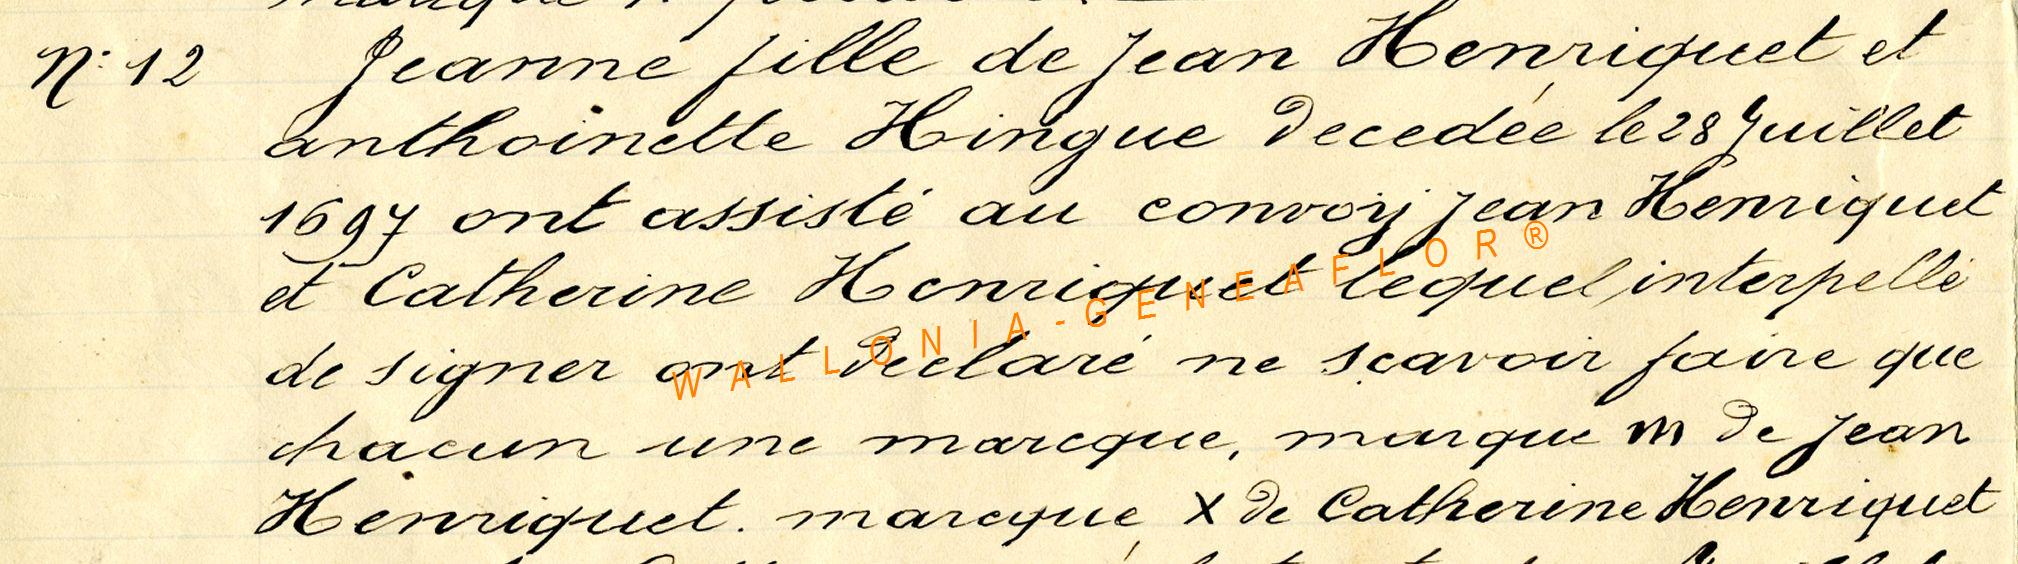 N: 12 Jeanne fille de Jean Henriquet et
anthoinette Hingue Decedée le 28 Juillet
1697 ont assisté au convoij Jean Henriquet
et Catherine Henriquet lequel interpellé
de signer ont Declaré ne sçavoir faire que
chacun une marcque, marque m de Jean
Henriquet. marcque X de Catherine Henriquet
WALLONIA-GENEAFLOR®